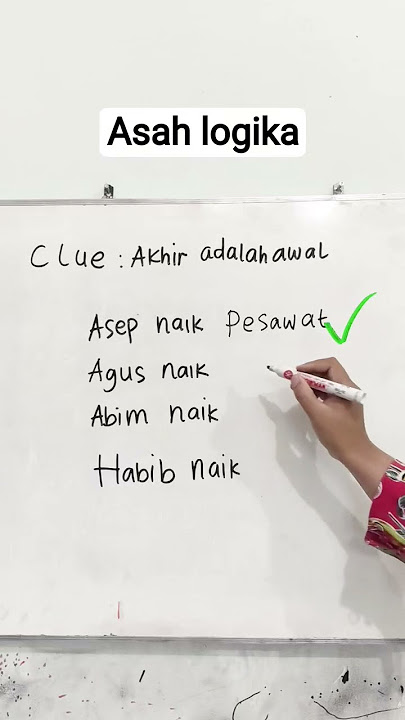 Asah logika
Clue : Akhir adalah awal
Asep naik Pesawat
Agus naik
Abim naik
Habib naik